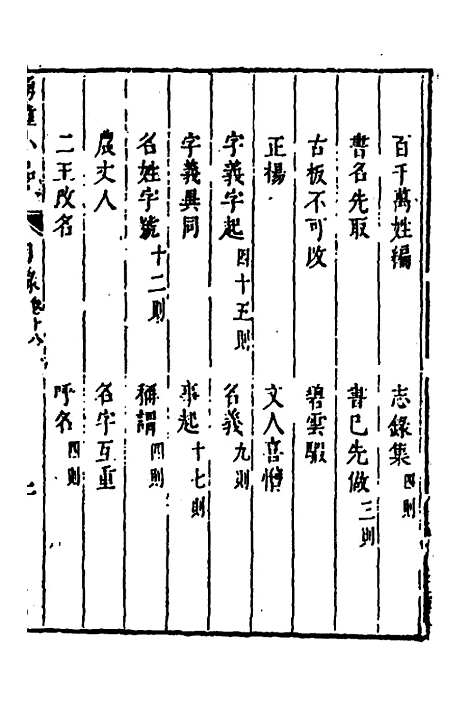 百千萬姓編　志錄集四則
書名先取　書已先做三則
古板不可改　碧雲騢
正楊　文人喜憎
字義字起四十五則　名義九則
字義異同　事起十七則
名姓字號十二則　稱謂四則
農丈人　名字互重
二王改名　呼名四則
小品　目錄卷十八